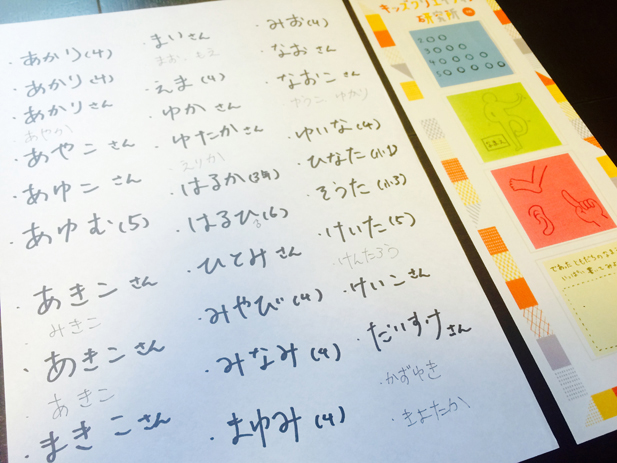 ・あかり(4)
・あかり(4)
・あかりさん
あやか
・あやこさん
・あゆこさん
・あゆむ(5)
・あきこさん
みきこ
・あきこさん
あきこ
・まきこさん
・まいさん
まお、もえ
・えま(4)
・ゆかさん
・ゆたかさん
えりか
・はるか(3年)
・はるひ(6)
・ひとみさん
・みやび(4)
・みなみ(4)
・まゆみ(4)
・みお(4)
・なおさん
・なおこさん
ゆうこ ゆかり
・ゆいな(4)
・ひなた(小1)
・そうた(小3)
・けいた(5)
けんたろう
・けいこさん
・だいすけさん
・かずゆき
・きよたか
キッズクリエイティブ
研究所